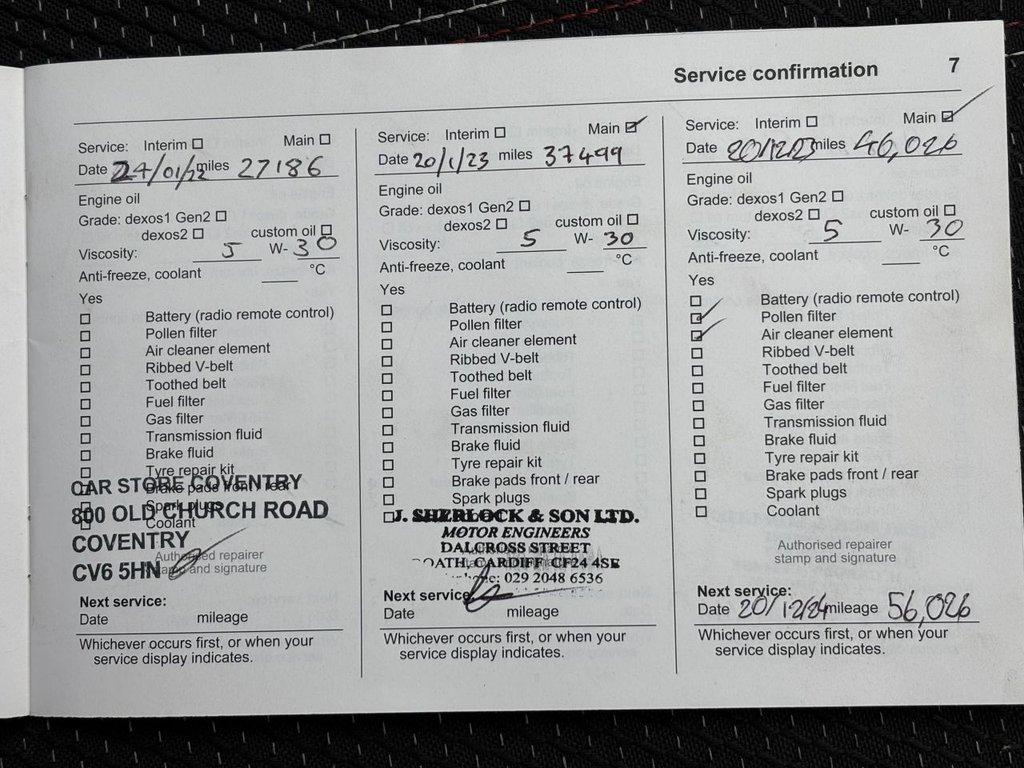 Service confirmation 7
Service: Interim ☐ Main ☐
Date 24/01/22 miles 27186
Engine oil
Grade: dexos1 Gen2 ☐
dexos2 ☐ custom oil ☐
Viscosity: 5 W- 30
Anti-freeze, coolant ____ °C
Yes
☐ Battery (radio remote control)
☐ Pollen filter
☐ Air cleaner element
☐ Ribbed V-belt
☐ Toothed belt
☐ Fuel filter
☐ Gas filter
☐ Transmission fluid
☐ Brake fluid
☐ Tyre repair kit
☐ Brake pads front / rear
☐ Spark plugs
☐ Coolant
CAR STORE COVENTRY
800 OLD CHURCH ROAD
COVENTRY
CV6 5HN
Authorised repairer
stamp and signature
Next service:
Date mileage
Whichever occurs first, or when your
service display indicates.
Service: Interim ☐ Main ☑
Date 20/1/23 miles 37499
Engine oil
Grade: dexos1 Gen2 ☐
dexos2 ☐ custom oil ☐
Viscosity: 5 W- 30
Anti-freeze, coolant ____ °C
Yes
☐ Battery (radio remote control)
☐ Pollen filter
☐ Air cleaner element
☐ Ribbed V-belt
☐ Toothed belt
☐ Fuel filter
☐ Gas filter
☐ Transmission fluid
☐ Brake fluid
☐ Tyre repair kit
☐ Brake pads front / rear
☐ Spark plugs
☐
J. SHERLOCK & SON LTD.
MOTOR ENGINEERS
DALCROSS STREET
OATH, CARDIFF CF24 4SE
029 2048 6536
Next service:
Date mileage
Whichever occurs first, or when your
service display indicates.
Service: Interim ☐ Main ☑
Date 20/12/23 miles 46,026
Engine oil
Grade: dexos1 Gen2 ☐
dexos2 ☐ custom oil ☐
Viscosity: 5 W- 30
Anti-freeze, coolant ____ °C
Yes
☐ Battery (radio remote control)
☑ Pollen filter
☑ Air cleaner element
☐ Ribbed V-belt
☐ Toothed belt
☐ Fuel filter
☐ Gas filter
☐ Transmission fluid
☐ Brake fluid
☐ Tyre repair kit
☐ Brake pads front / rear
☐ Spark plugs
☐ Coolant
Authorised repairer
stamp and signature
Next service:
Date 20/12/24 mileage 56,026
Whichever occurs first, or when your
service display indicates.